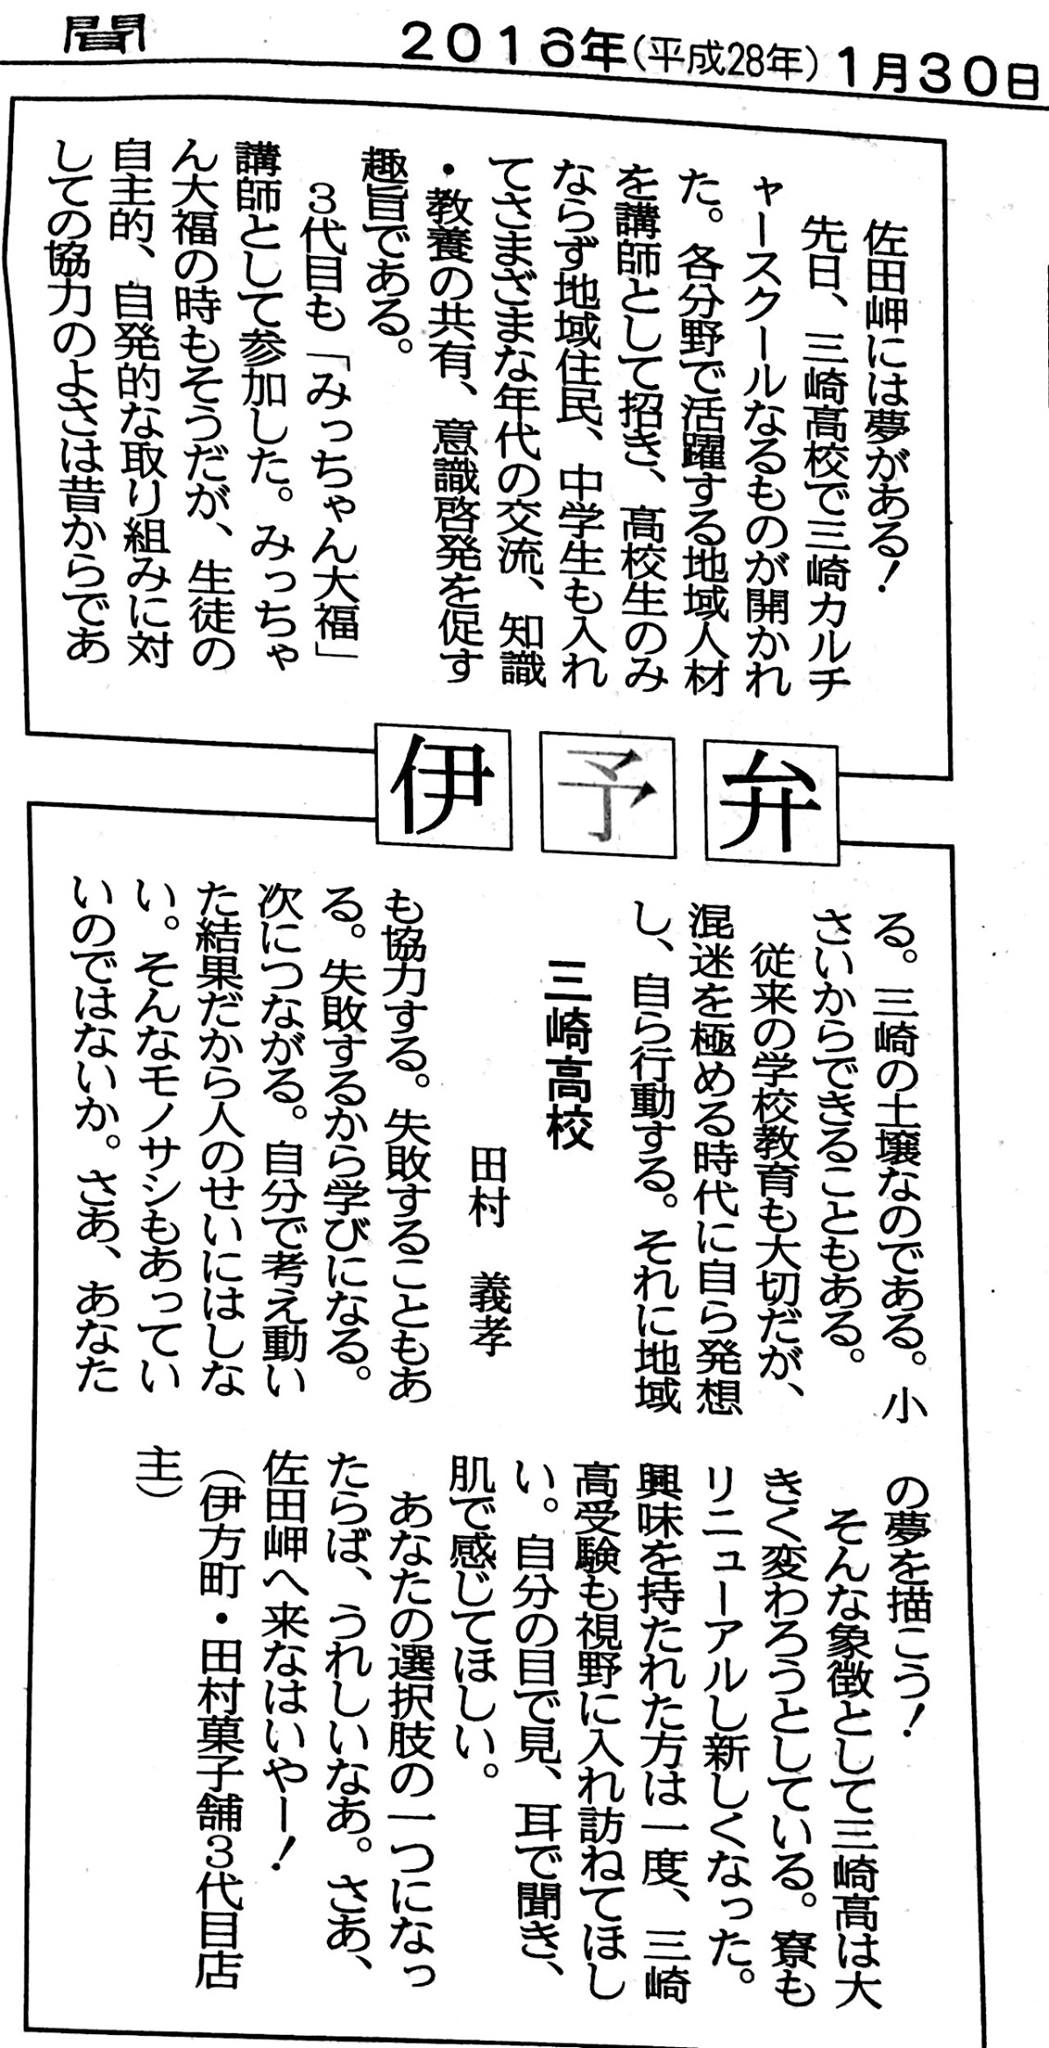 聞
2016年(平成28年)1月30日
佐田岬には夢がある!
先日、三崎高校で三崎カルチ
ャースクールなるものが開かれ
た。各分野で活躍する地域人材
を講師として招き、高校生のみ
ならず地域住民、中学生も入れ
てさまざまな年代の交流、知識
・教養の共有、意識啓発を促す
趣旨である。
3代目も「みっちゃん大福」
講師として参加した。みっちゃ
ん大福の時もそうだが、生徒の
自主的、自発的な取り組みに対
しての協力のよさは昔からであ
伊予弁
る。三崎の土壌なのである。小
さいからできることもある。
従来の学校教育も大切だが、
混迷を極める時代に自ら発想
し、自ら行動する。それに地域
三崎高校
田村 義孝
も協力する。失敗することもあ
る。失敗するから学びになる。
次につながる。自分で考え動い
た結果だから人のせいにはしな
い。そんなモノサシもあってい
いのではないか。さあ、あなた
の夢を描こう!
そんな象徴として三崎高は大
きく変わろうとしている。寮も
リニューアルし新しくなった。
興味を持たれた方は一度、三崎
高受験も視野に入れ訪ねてほし
い。自分の目で見、耳で聞き、
肌で感じてほしい。
あなたの選択肢の一つになっ
たらば、うれしいなあ。さあ、
佐田岬へ来なはいやー!
(伊方町・田村菓子舗3代目店
主)